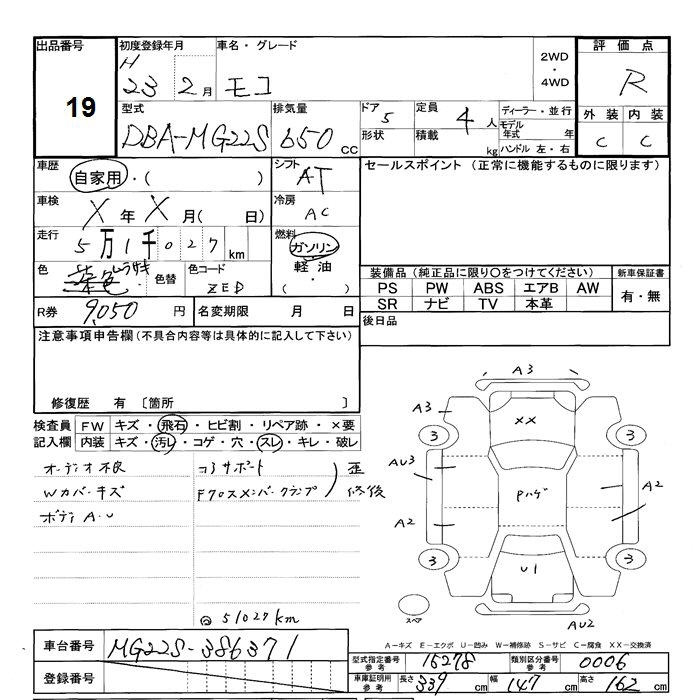 出品番号 初度登録年月 車名・グレード 2WD・4WD 評価点
19 H 23 2月 モコ R
型式 排気量 ドア 5 定員 4人 ディーラー・並行 外装 内装
DBA-MG22S 650 cc 形状 積載 kg モデル年式 年 ハンドル 左・右 C C
車歴 自家用・( ) シフト AT セールスポイント (正常に機能するものに限ります)
車検 X年X月( 日) 冷房 AC
走行 5万1千027km 燃料 ガソリン 軽油・( )
色 色替 色コード ZED
装備品(純正品に限り○をつけてください) 新車保証書
PS PW ABS エアB AW 有・無
SR ナビ TV 本革
R券 9,050円 名変期限 月 日 後日品
注意事項申告欄(不具合内容等は具体的に記入して下さい)
修復歴 有 〔箇所 〕
検査員 FW キズ・飛石・ヒビ割・リペア跡・×要
記入欄 内装 キズ・汚レ・コゲ・穴・スレ・キレ・破レ
オーディオ不良 コアサポート 歪
Wカバーキズ Fクロスメンバークランプ 修後
ボディA.U
@51027km
A3
A3 XX
3 3
AU3 Pハゲ A2
A2
3 U1 3
スペア AU2
A-キズ E-エクボ U-凹み W-補修跡 S-サビ C-腐食 XX-交換済
車台番号 MG22S-386371
登録番号
型式指定番号 参考 15278 類別区分番号 参考 0006
車庫証明用 参考 長さ 339cm 幅 147cm 高さ 162cm